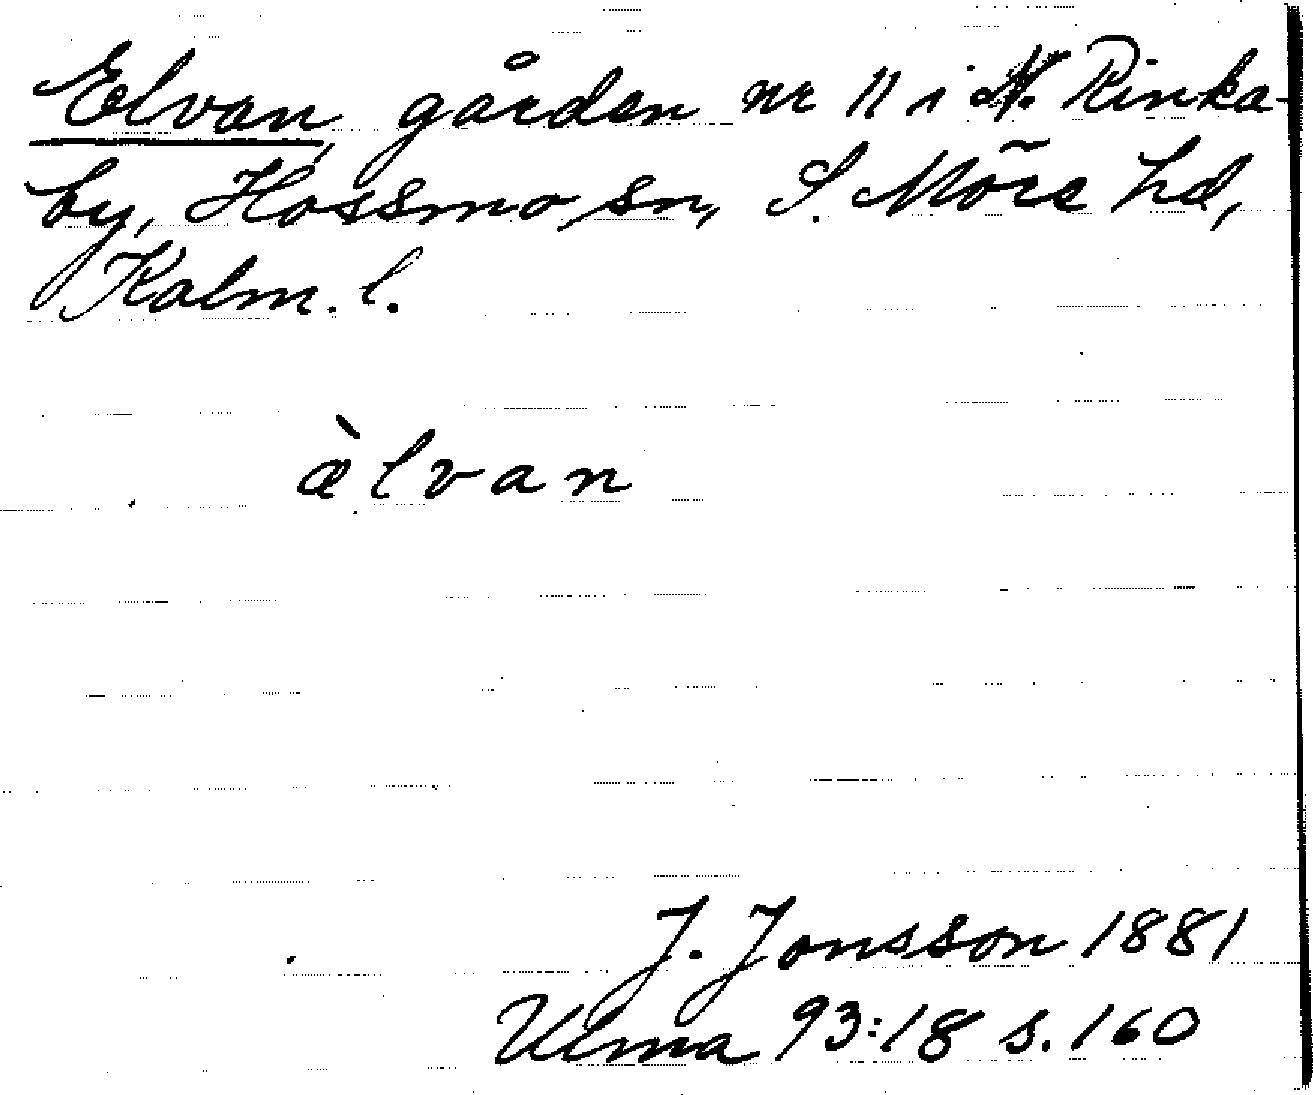 Elvan, gården nr 11 i N. Rinka-
by, Hossmo sn, S. Möre hd,
Kalm. l.
àlvan
J. Jonsson 1881
Ulma 93:18 s. 160